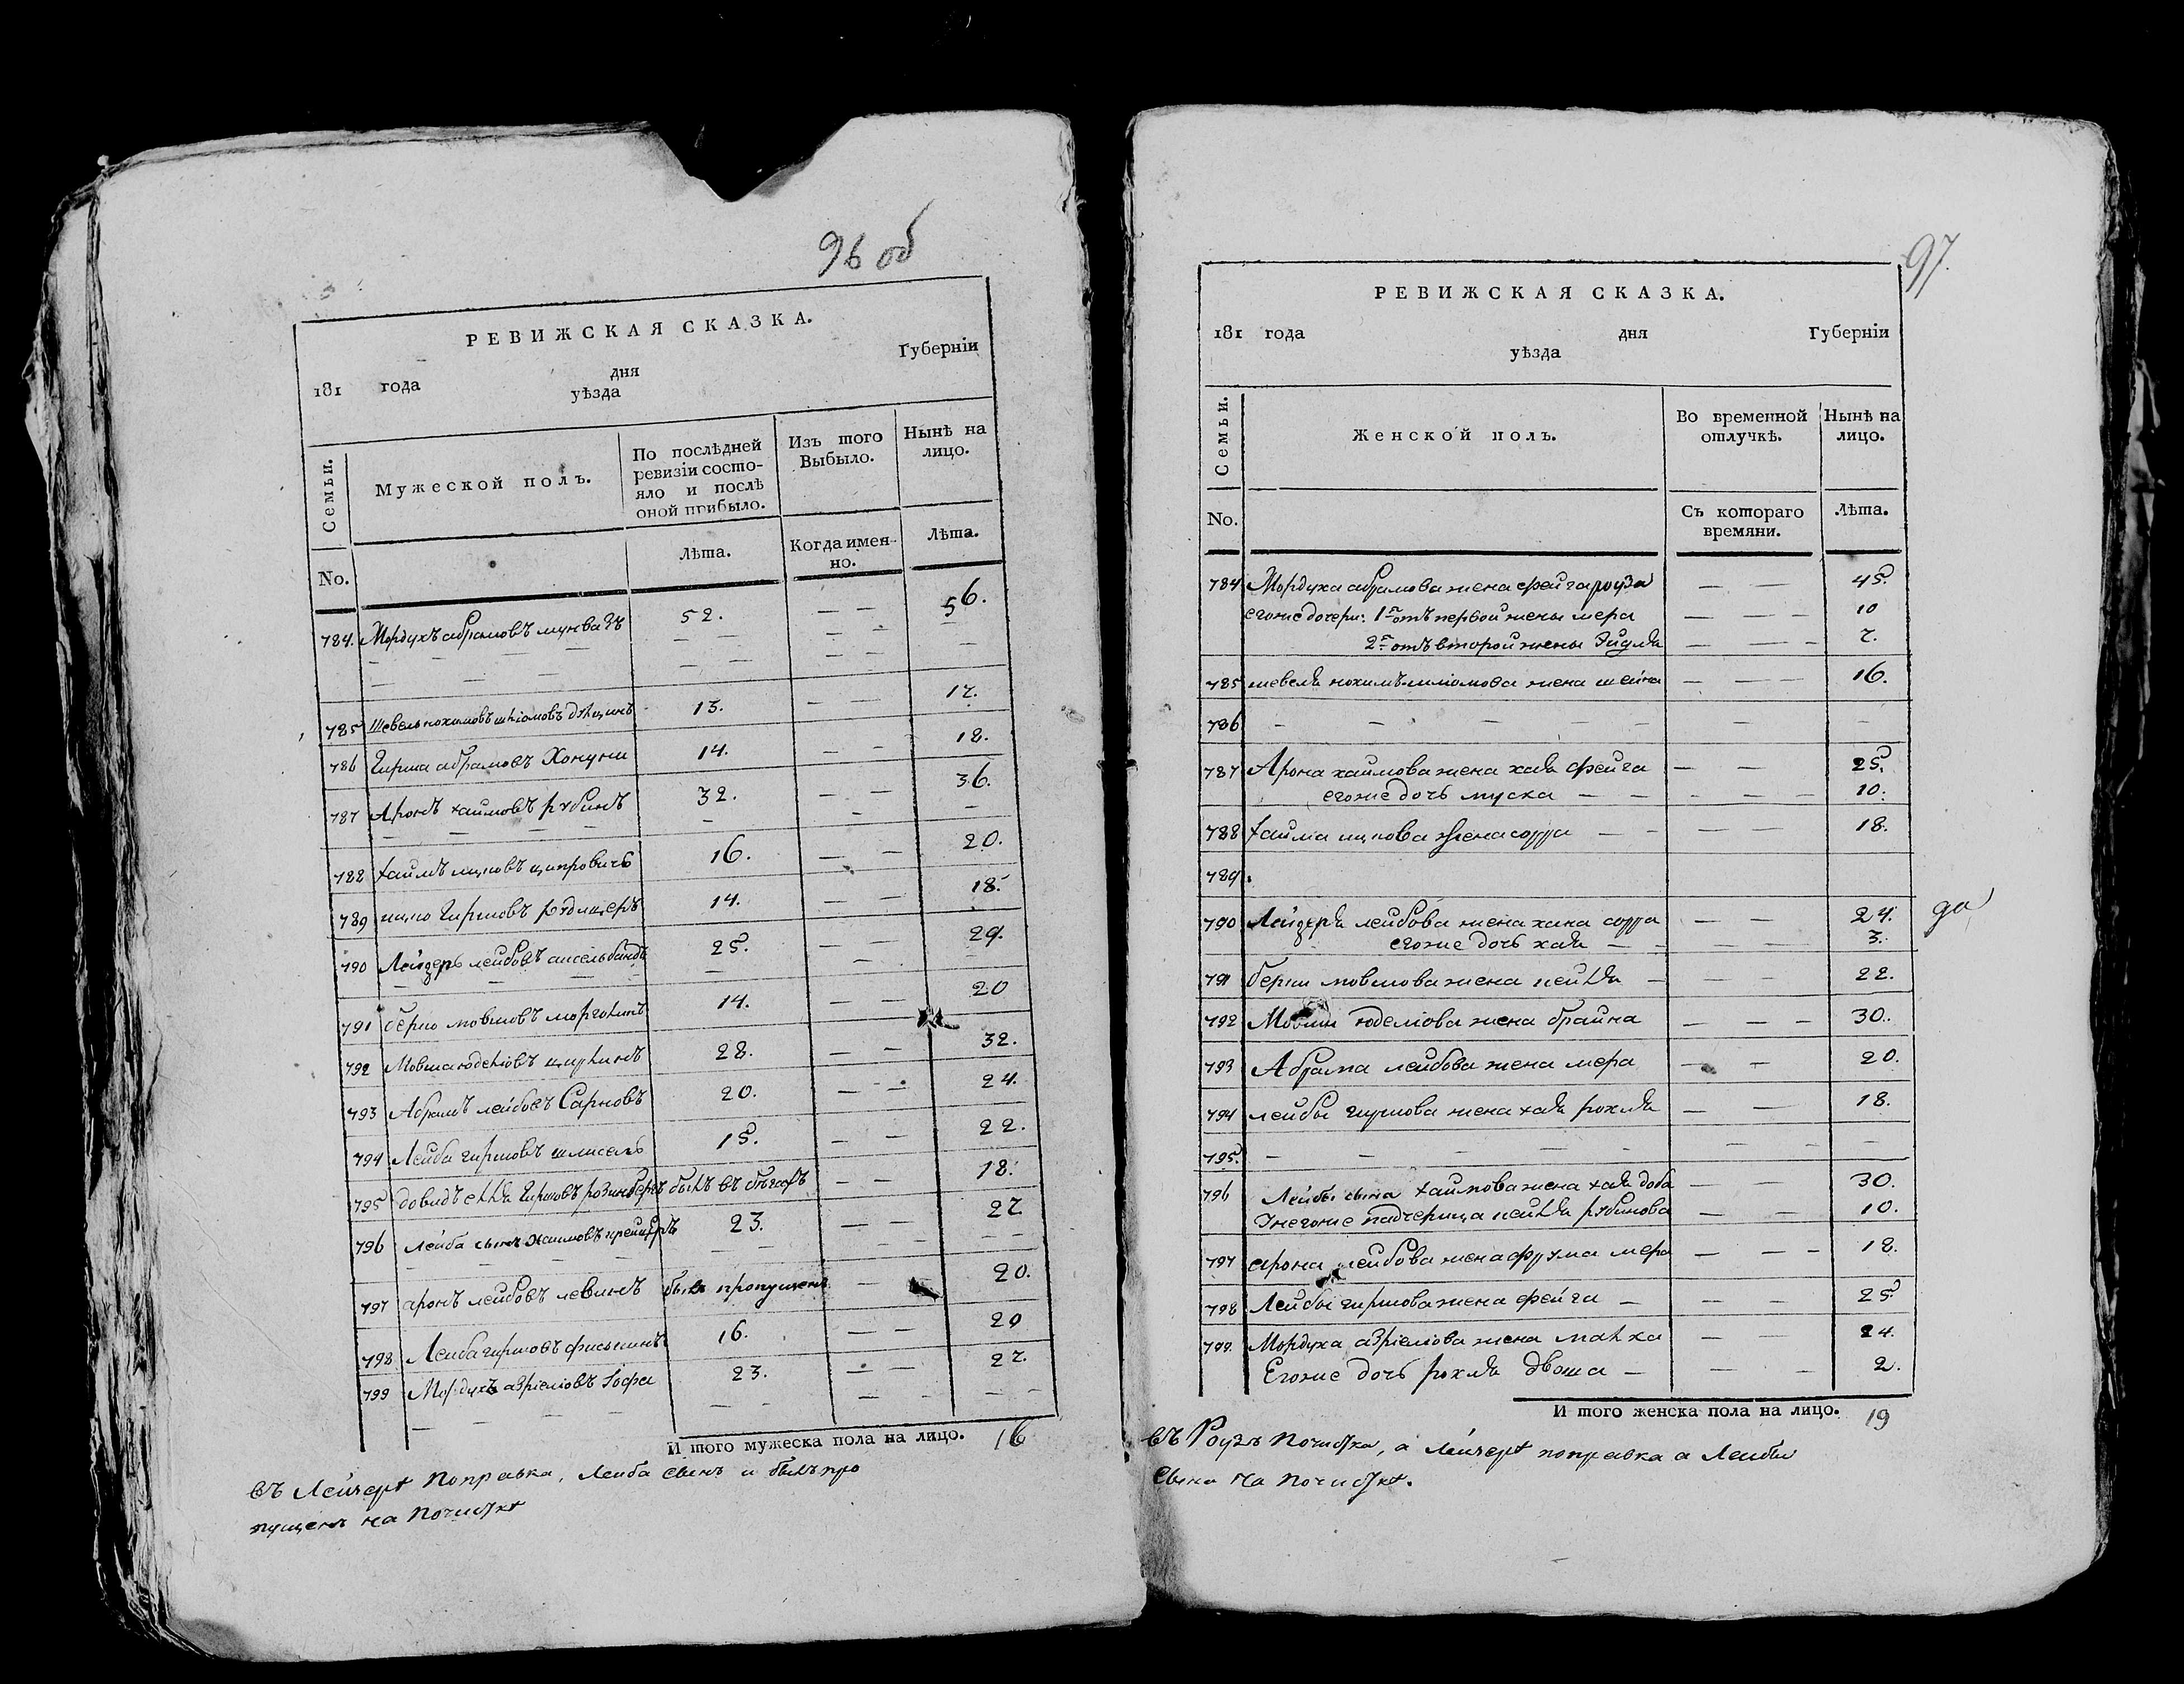 96 об
РЕВИЖСКАЯ СКАЗКА.
181 года дня Губерніи
уѣзда
Семьи.
Мужеской полъ.
По послѣдней ревизіи состояло и послѣ оной прибыло.
Изъ того Выбыло.
Нынѣ на лицо.
No.
Лѣта.
Когда именно.
Лѣта.
784. Мордухъ абрамовъ 52. — — 56.
785 Шевель нохимовъ шліомовъ 13. — — 17.
786 Гирша абрамовъ 14. — — 18.
787 Аронъ хаимовъ рубинъ 32. — — 36.
788 хаимъ ицковъ ципровичъ 16. — — 20.
789 ицко гиршовъ 14. — — 18.
790 Лейзеръ лейбовъ 25. — — 29.
791 берко мовшовъ 14. — — 20
792 Мовша юделіовъ 28. — — 32.
793 Абрамъ лейбовъ Сарновъ 20. — — 24.
794 Лейба гиршовъ 15. — — 22.
795 довидъ гиршовъ розинберъ былъ въ бѣгахъ — — 18.
796 Лейба сынъ хаимовъ 23. — — 27
797 аронъ лейбовъ левинъ былъ пропущенъ — — 20.
798 Лейба гиршовъ 16. — — 20
799 Мордухъ азріеліовъ 23. — — 27.
И того мужеска пола на лицо. 16
въ Лейзере поправка, Лейба сынъ и былъ про
пущенъ на почистке
97.
РЕВИЖСКАЯ СКАЗКА.
181 года дня Губерніи
уѣзда
Семьи.
Женской полъ.
Во временной отлучкѣ.
Нынѣ на лицо.
No.
Съ котораго времяни.
Лѣта.
784 Мордуха абрамова жена фейгароуза — — 45.
егоже дочери: 1я отъ первой жены мера — — 10
2я отъ второй жены Эйдля — — — 7.
785 шевеля нохимъ шліомова жена шейна — — — 16.
786 — — — — — — —
787 Арона хаимова жена хая фейга — — 25.
егоже дочь муска — — — — — 10.
788 хаима ицкова жена сорра — — — — 18.
789.
790 Лейзера лейбова жена хана сорра — — 24. да
егоже дочь хая — — — — 3.
791 берки мовшова жена пейля — — — 22.
792 Мовши юделіова жена брайна — — — 30.
793 Абрама лейбова жена мера — — 20.
794 лейбы гиршова жена хая рохля — — 18.
795. — — — — — — — —
796 Лейбы сына хаимова жена хая доба — — 30.
Унегоже падчерица пейля рубинова — — 10.
797 арона лейбова жена фрума мера — — — 18.
798 Лейбы гиршова жена фейга — — — 25
799. Мордуха азріеліова жена малка — — 24.
Егоже дочь рохля двоша — — — 2.
И того женска пола на лицо. 19
въ Роузъ почистка, а Лейзере поправка а Лейбы
Сына на почистке.